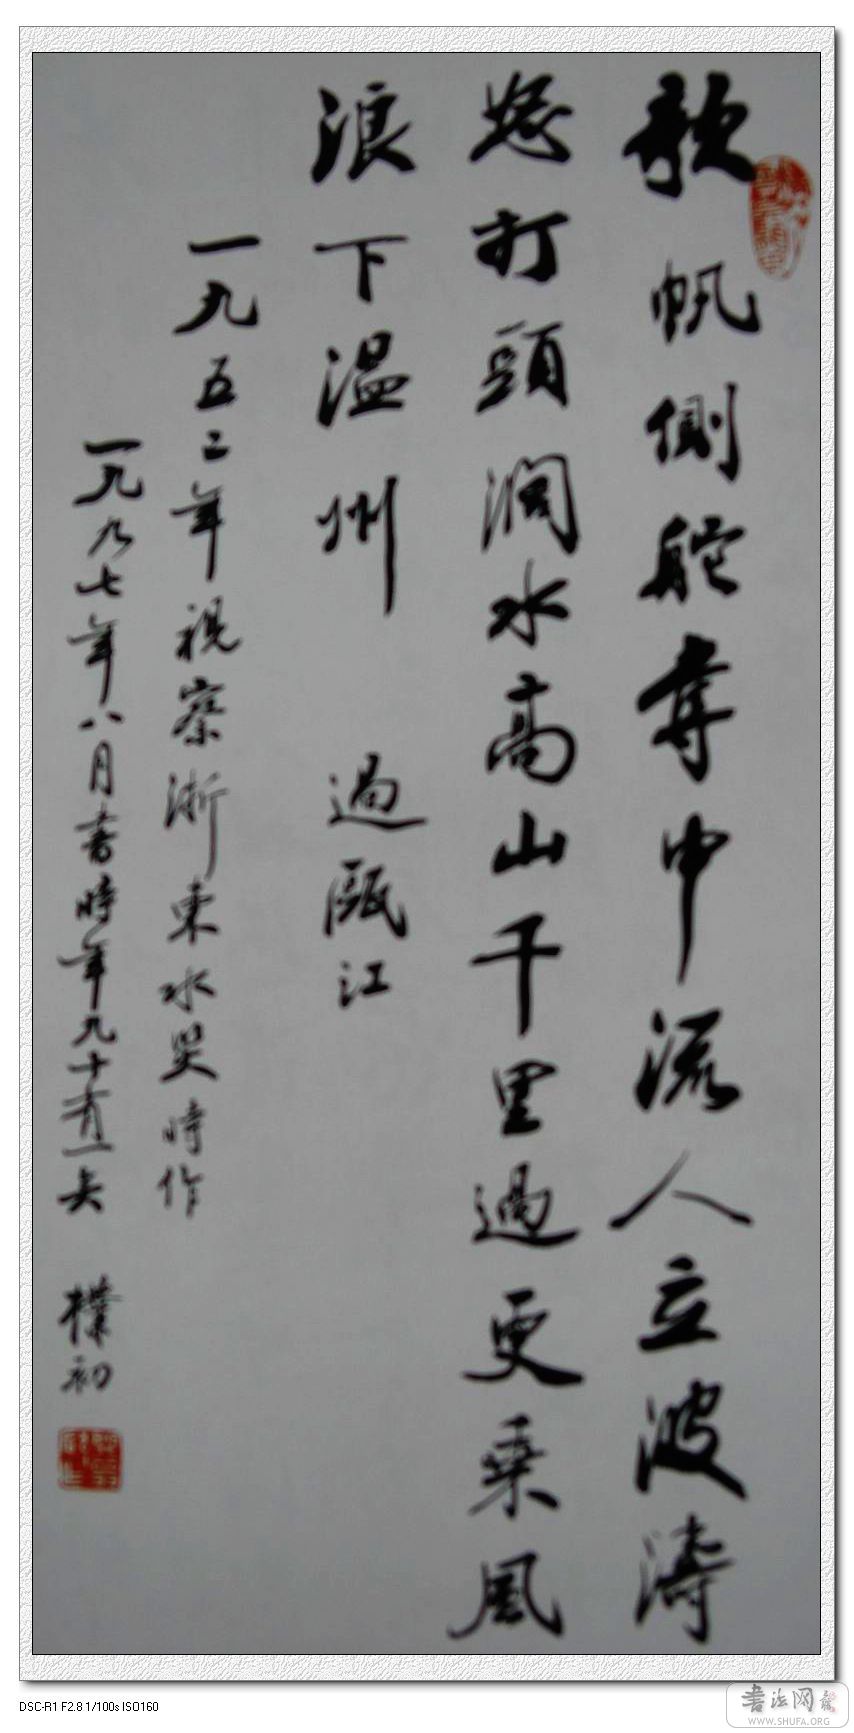 欹帆側舵奪中流人立波濤
怒打頭濶水高山千里過更乘風
浪下温州 過甌江
一九五二年視察浙東水災時作
一九九七年八月書時年九十有一矣 樸初
DSC-R1 F2.8 1/100s ISO160
書法网
WWW.SHUFA.ORG